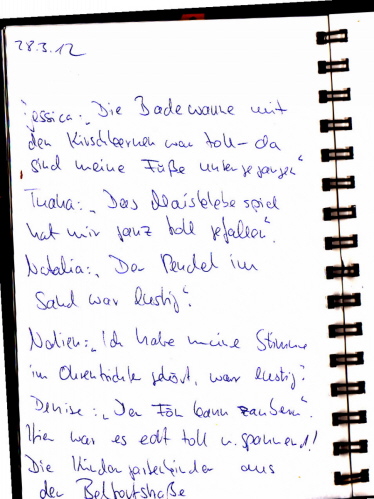 28.3.12
Jessica: „Die Badewanne mit
den Kirschkernen war toll – da
sind meine Füße untergegangen"
„Das Maisklebespiel
hat mir ganz toll gefallen".
Natalia: „Der Pendel im
Sand war lustig".
„Ich habe meine Stimme
im Ohrentrichter gehört, war lustig"
Denise: „Der Fön kann zaubern".
Hier war es echt toll u. spannend!
Die Kindergartenkinder aus
der